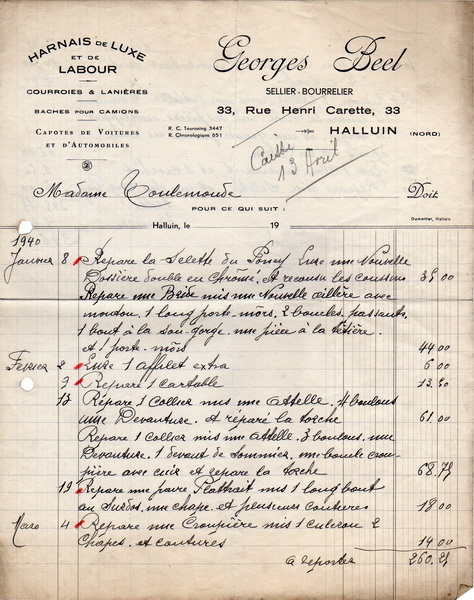 HARNAIS DE LUXE
ET DE
LABOUR
COURROIES & LANIÈRES
BACHES POUR CAMIONS
CAPOTES DE VOITURES
ET D'AUTOMOBILES
Georges Beel
SELLIER-BOURRELIER
33, Rue Henri Carette, 33
HALLUIN (NORD)
R. C. Tourcoing 3447
R. Chronologique 651
13 Avril
Madame Toulemonde Doit
POUR CE QUI SUIT :
Dumortier, Halluin
Halluin, le 19
1940
Janvier 8 Réparé la Selette du Poney Luxe une Nouvelle
Dossière double en Chrômé, et recousu les coussins 35.00
Réparé une Bride mis une Nouvelle œillère avec
mouton. 1 long porte-mors, 2 boucles, passants,
1 bout à la sou-gorge, une pièce à la têtière
et 1 porte-mors 44 00
Fevrier 2 Luxe 1 affilet extra 6 00
9 Réparé 1 cartable 13.20
13 Réparé 1 collier mis une attelle, 4 boulons
une Devanture et réparé la torche 61.00
Réparé 1 collier mis une attelle, 3 boulons, une
Devanture, 1 devant de sommier, une boucle crou-
pière avec cuir et réparé la torche 68.75
19 Réparé une paire mis 1 long bout
au Surdos, une chape et plusieurs coutures 18 00
Mars 4 Réparé une Croupière mis 1 culeron 2
chapes et coutures 14 00
a reporter 260.25